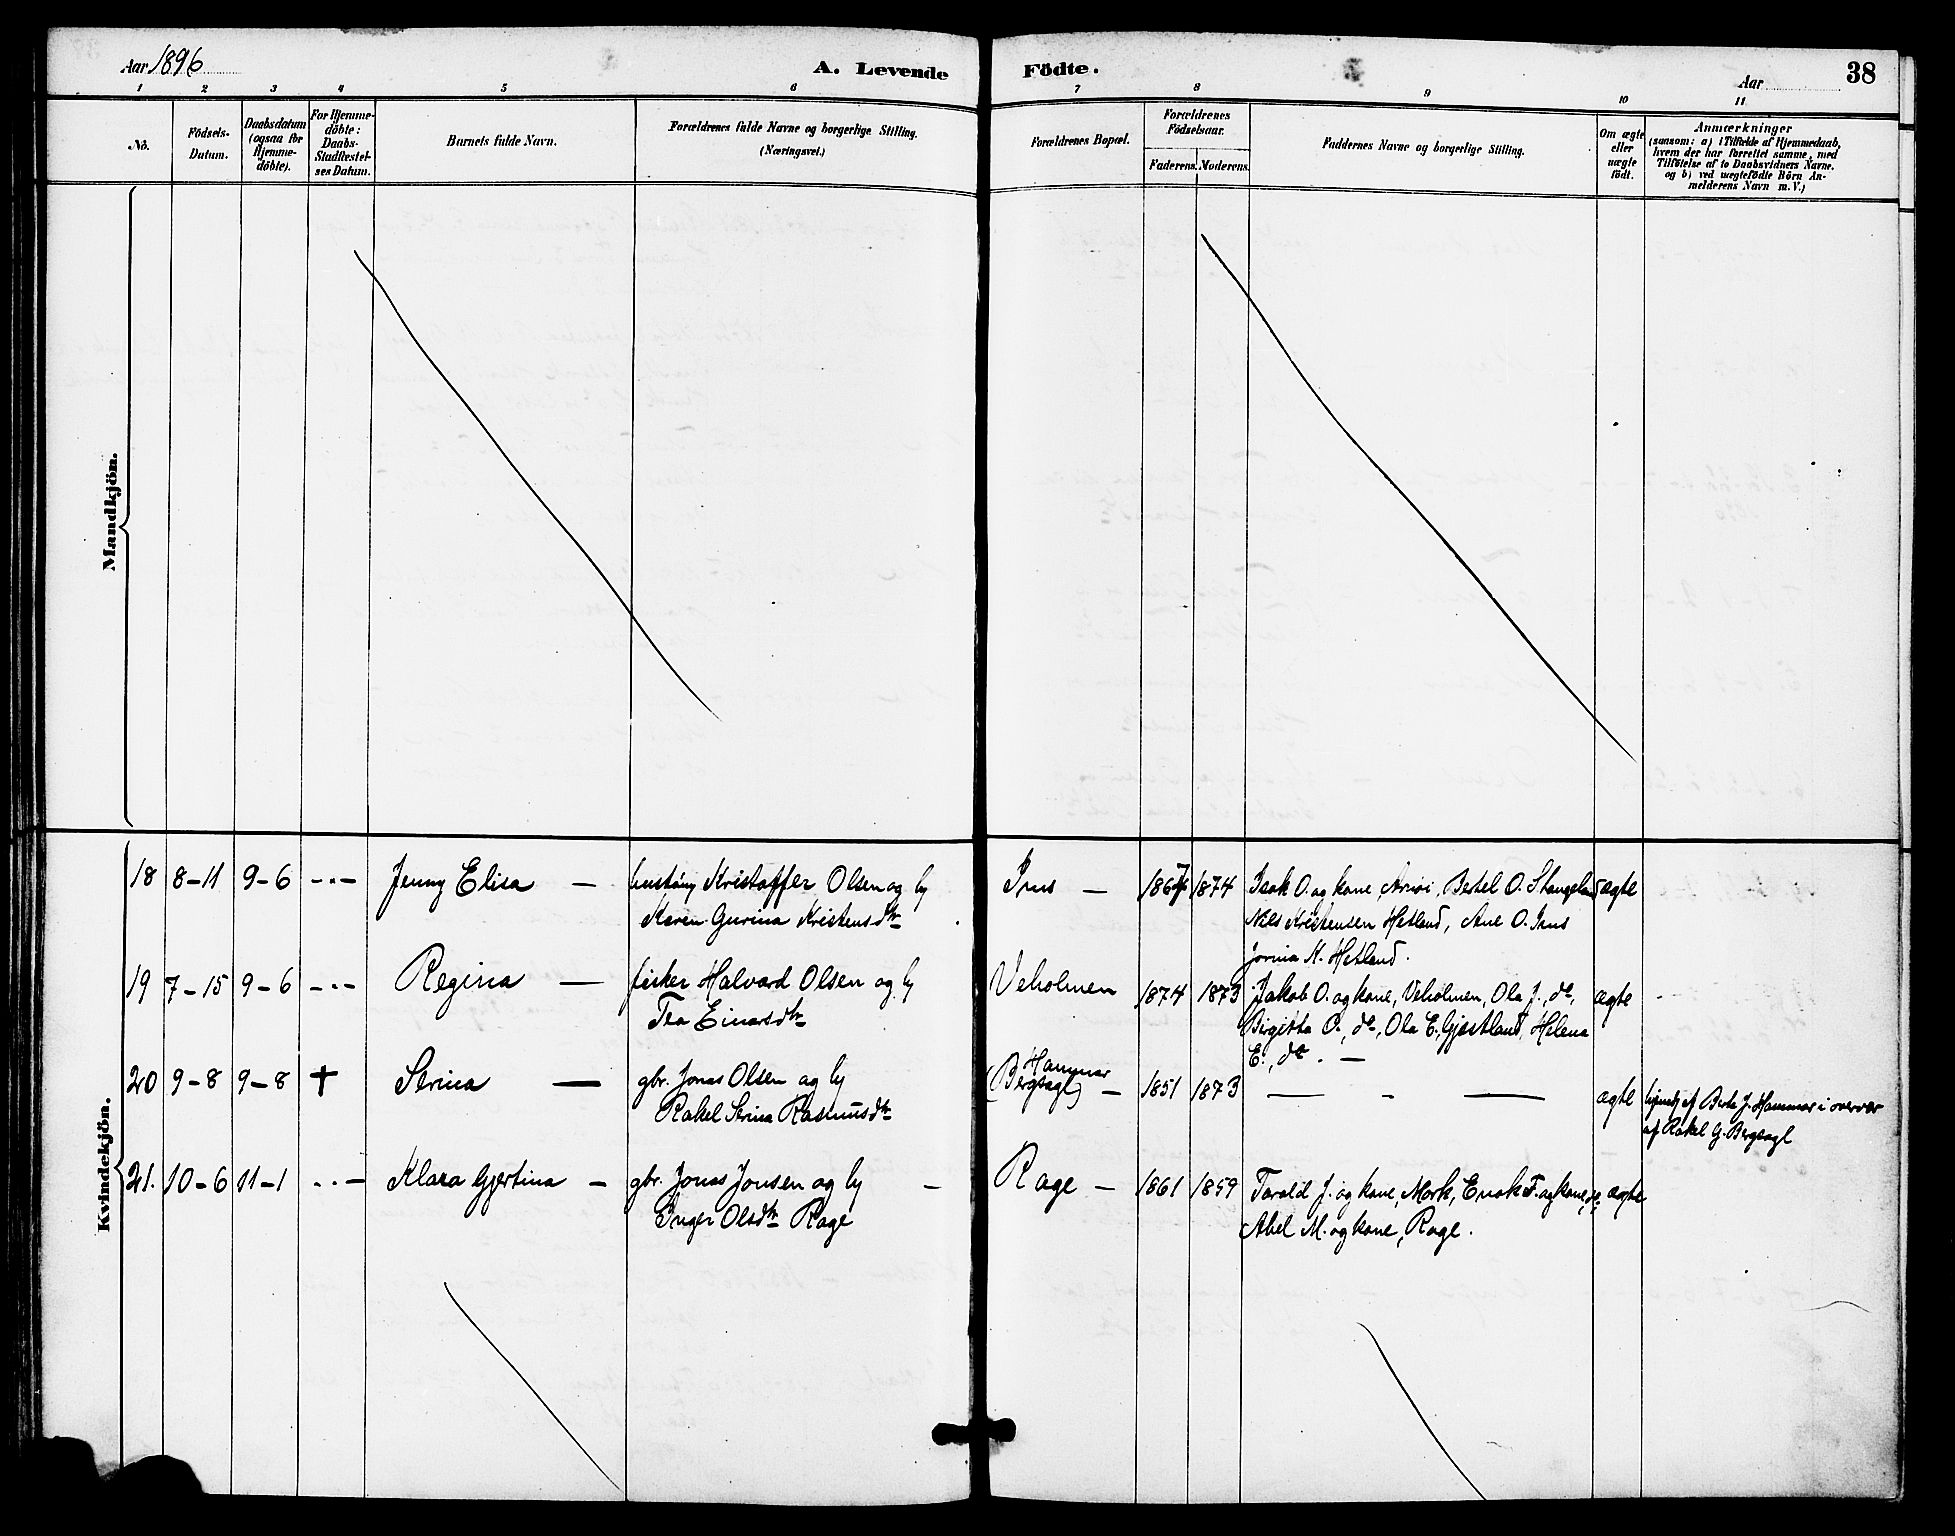 Aar 1896
A. Levende
Födte.
Aar
38
1 2 3 4 5 6 7 8 9 10 11
No.
Födsels-
Datum.
Daabsdatum
(ogsaa for
Hjemme-
döbte).
For Hjemme-
döbte:
Daabs-
Stadfæstel-
ses Datum.
Barnets fulde Navn.
Forældrenes fulde Navne og borgerlige Stilling.
(Næringsvei.)
Forældrenes Bopæl.
Forældrenes
Födselsaar.
Faderens. Moderens.
Faddernes Navne og borgerlige Stilling.
Om ægte
eller
uægte
födt.
Anmærkninger
(saasom: a) i Tilfælde af Hjemmedaab,
hvem der har forrettet samme, med
Tilföielse af to Daabsvidners Navne.
og b) ved uægtefödte Börn An-
melderens Navn m. V.)
Mandkjön.
Kvindekjön.
18 8-11 9-6 -"- Jenny Elisa — Kristoffer Olsen og
Karen Gurina Kristensdtr
— 1867 1874 Isak O. og kone, Bertel O. Stangeland ægte
Nils Kristensen Hetland, Ane O.
Jorina K. Hetland.
19 7-15 9-6 -"- Regina — fisker Halvard Olsen og
Tea Einarsdtr
Veholmen 1874 1873 Jakob O. og kone, Veholmen, Ola J., do, ægte
Birgitta O., do, Ola E. Gjestland, Helena
E., do. —
20 9-8 9-8 † Serina — gbr. Jonas Olsen og
Rakel Serina Rasmusdtr
Hammar
(Bergsagel) — 1851 1873 — - — ægte af Berta J. Hammar i overvær
af Rakel G. Bergsagl
21. 10-6 11-1 -"- Klara Gjertina — gbr. Jonas Jonsen og —
Inger Olsdtr Rage
Rage — 1861 1859 Tarald J. og kone, Mork, Enok T. og kone, ægte
Abel M. og kone, Rage.